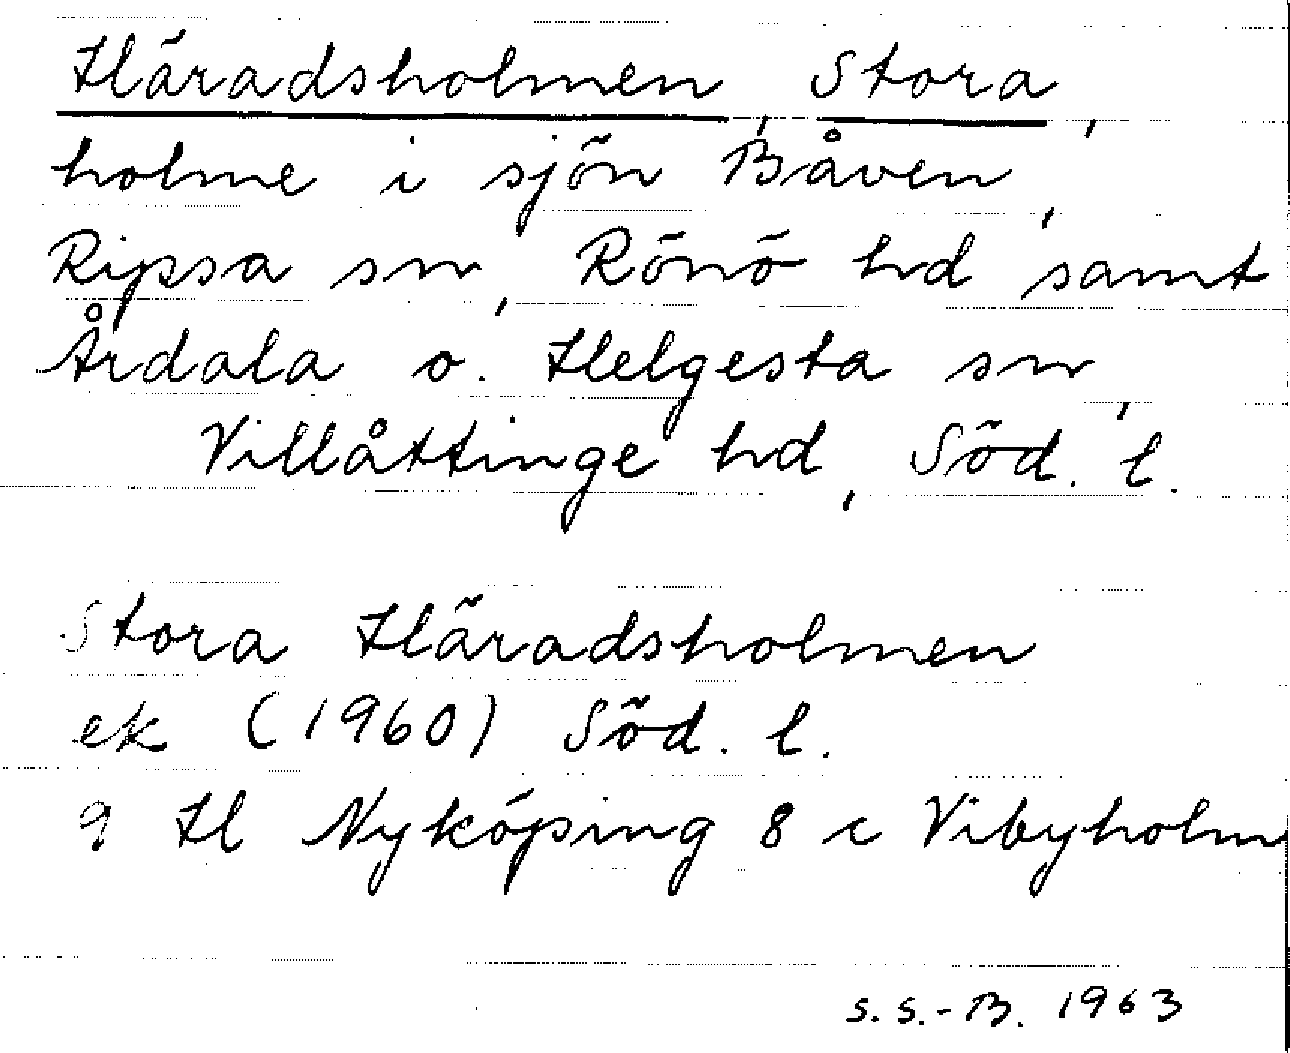 Häradsholmen, Stora,
holme i sjön Båven,
Ripsa sn, Rönö hd samt
Årdala o. Helgesta sn,
Villåttinge hd, Söd. l.
Stora Häradsholmen
ek (1960) Söd. l.
9 H Nyköping 8 c Vibyholm
S.S.-B. 1963